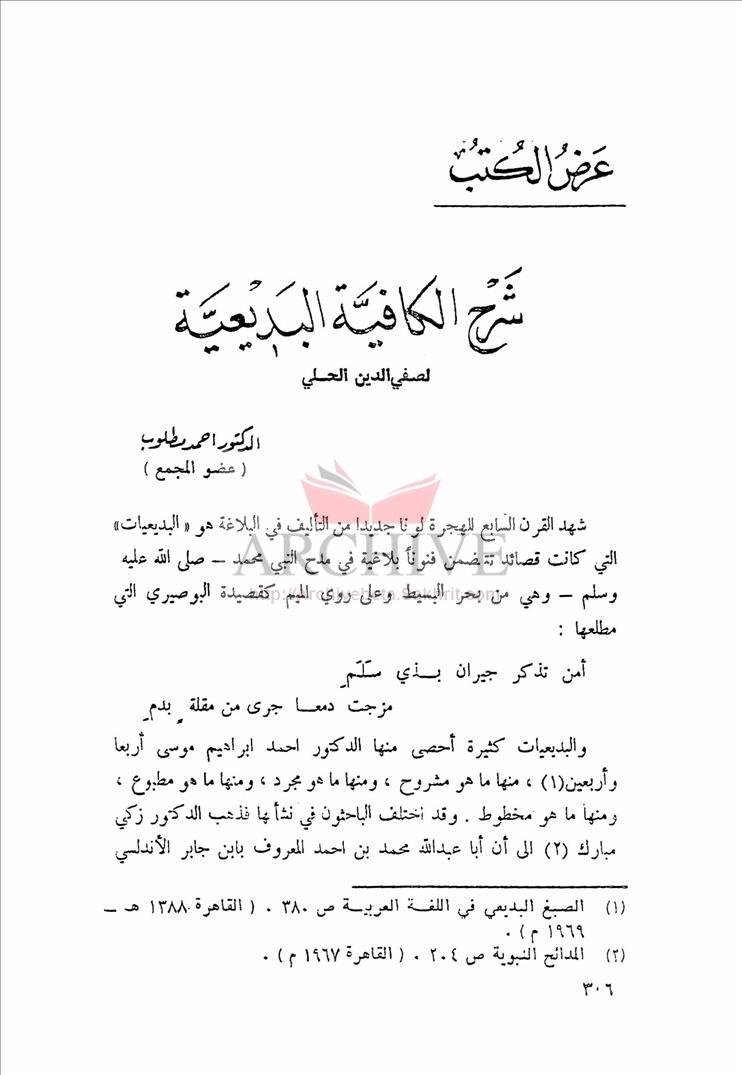 عَرضُ الكُتبُ
شَرْح الكافيَّة البَديْعيَّة
لصفي الدين الحلي
الدكتور احمد مطلوب
( عضو المجمع )
شهد القرن السابع للهجرة لونا جديدا من التأليف في البلاغة هو « البديعيات»
التي كانت قصائد تتضمن فنوناً بلاغية في مدح النبي محمد – صلى الله عليه
وسلم – وهي من بحر البسيط وعلى روي الميم كقصيدة البوصيري التي
مطلعها :
أمن تذكر جيران بذي سَلَمٍ
مزجت دمعا جرى من مقلة بدمِ
والبديعيات كثيرة أحصى منها الدكتور احمد ابراهيم موسى أربعا
وأربعين(١) ، منها ما هو مشروح ، ومنها ما هو مجرد ، ومنها ما هو مطبوع ،
ومنها ما هو مخطوط . وقد اختلف الباحثون في نشأتها فذهب الدكتور زكي
مبارك (٢) الى أن أبا عبدالله محمد بن احمد المعروف بابن جابر الأندلسي
(١) الصبغ البديعي في اللغة العربية ص ٣٨٠ . ( القاهرة ١٣٨٨ هـ –
١٩٦٩ م ) .
(٢) المدائح النبوية ص ٢٠٤ . ( القاهرة ١٩٦٧ م ) .
٣٠٦
ARCHIVE